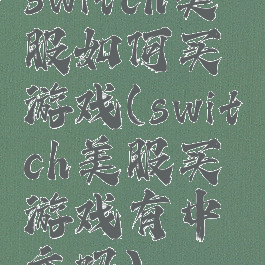 switch美
服如何买
游戏(swit
ch美服买
游戏有中
文吗)